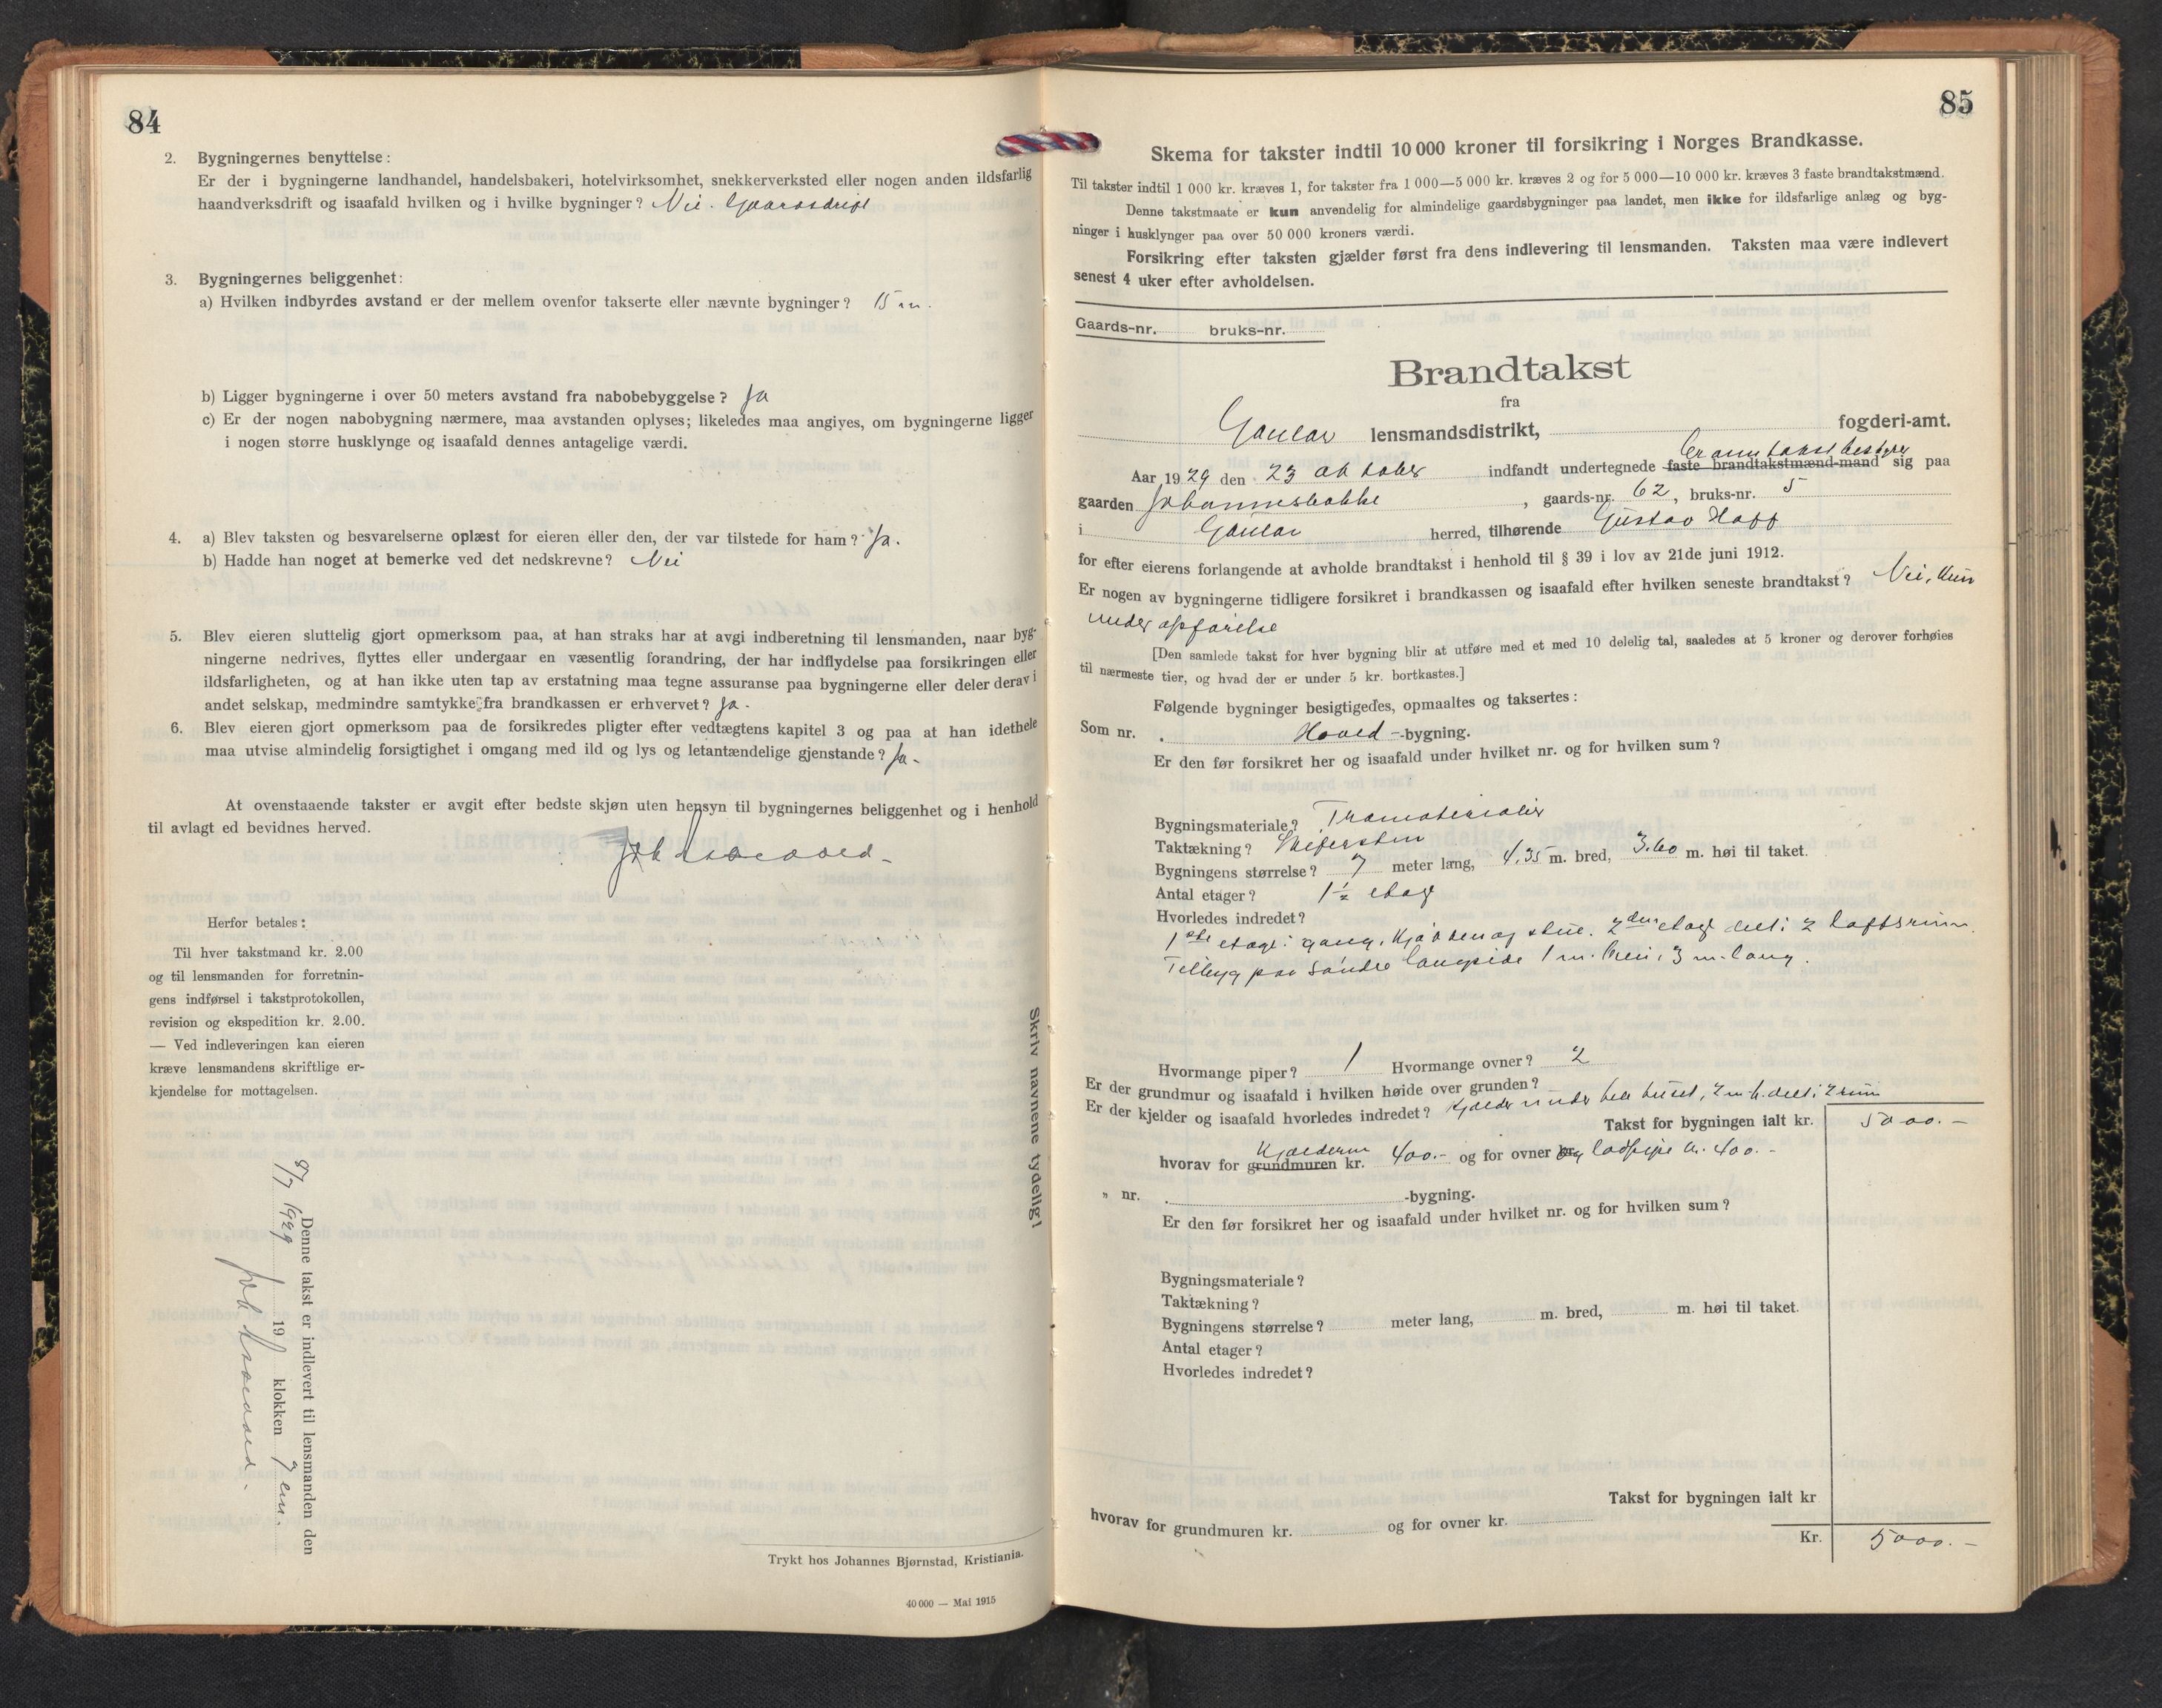 84
2. Bygningernes benyttelse:
Er der i bygningerne landhandel, handelsbakeri, hotelvirksomhet, snekkerverksted eller nogen anden ildsfarlig
haandverksdrift og isaafald hvilken og i hvilke bygninger? Nei. Gaardsdrift
3. Bygningernes beliggenhet:
a) Hvilken indbyrdes avstand er der mellem ovenfor takserte eller nævnte bygninger? 15 m.
b) Ligger bygningerne i over 50 meters avstand fra nabobebyggelse? Ja
c) Er der nogen nabobygning nærmere, maa avstanden oplyses; likeledes maa angives, om bygningerne ligger
i nogen større husklynge og isaafald dennes antagelige værdi.
4. a) Blev taksten og besvarelserne oplæst for eieren eller den, der var tilstede for ham? Ja.
b) Hadde han noget at bemerke ved det nedskrevne? Nei
5. Blev eieren sluttelig gjort opmerksom paa, at han straks har at avgi indberetning til lensmanden, naar byg-
ningerne nedrives, flyttes eller undergaar en væsentlig forandring, der har indflydelse paa forsikringen eller
ildsfarligheten, og at han ikke uten tap av erstatning maa tegne assuranse paa bygningerne eller deler derav i
andet selskap, medmindre samtykke fra brandkassen er erhvervet? Ja.
6. Blev eieren gjort opmerksom paa de forsikredes pligter efter vedtægtens kapitel 3 og paa at han idethele
maa utvise almindelig forsigtighet i omgang med ild og lys og letantændelige gjenstande? Ja.
At ovenstaaende takster er avgit efter bedste skjøn uten hensyn til bygningernes beliggenhet og i henhold
til avlagt ed bevidnes herved.
Herfor betales:
Til hver takstmand kr. 2.00
og til lensmanden for forretnin-
gens indførsel i takstprotokollen,
revision og ekspedition kr. 2.00.
— Ved indleveringen kan eieren
kræve lensmandens skriftlige er-
kjendelse for mottagelsen.
Denne takst er indlevert til lensmanden den
9/7 1929 19 klokken 7 em.
Skriv navnene tydelig!
Trykt hos Johannes Bjørnstad, Kristiania.
40 000 — Mai 1915
85
Skema for takster indtil 10 000 kroner til forsikring i Norges Brandkasse.
Til takster indtil 1 000 kr. kræves 1, for takster fra 1 000—5 000 kr. kræves 2 og for 5 000—10 000 kr. kræves 3 faste brandtakstmænd.
Denne takstmaate er kun anvendelig for almindelige gaardsbygninger paa landet, men ikke for ildsfarlige anlæg og byg-
ninger i husklynger paa over 50 000 kroners værdi.
Forsikring efter taksten gjælder først fra dens indlevering til lensmanden. Taksten maa være indlevert
senest 4 uker efter avholdelsen.
Gaards-nr. bruks-nr.
Brandtakst
fra
Gaular lensmandsdistrikt, fogderi-amt.
Branntakstbestyrer
Aar 1929 den 23 oktober indfandt undertegnede faste brandtakstmænd-mand sig paa
gaarden Johannesbakke, gaards-nr. 62, bruks-nr. 5
i Gaular herred, tilhørende Gustav Hopp
for efter eierens forlangende at avholde brandtakst i henhold til § 39 i lov av 21de juni 1912.
Er nogen av bygningerne tidligere forsikret i brandkassen og isaafald efter hvilken seneste brandtakst? Nei, kun
under opførelse
[Den samlede takst for hver bygning blir at utføre med et med 10 delelig tal, saaledes at 5 kroner og derover forhøies
til nærmeste tier, og hvad der er under 5 kr. bortkastes.]
Følgende bygninger besigtigedes, opmaaltes og taksertes:
Som nr. . Hoved-bygning.
Er den før forsikret her og isaafald under hvilket nr. og for hvilken sum?
Bygningsmateriale? Træmaterialer
Taktækning? Skifersten
Bygningens størrelse? 7 meter lang, 4,35 m. bred, 3.60 m. høi til taket.
Antal etager? 1½ etage
Hvorledes indredet?
1ste etage: gang, kjøkken og stue. 2den etage delt i 2 loftsrum.
Tilbygg paa søndre langside 1 m. brei, 3 m. lang.
Hvormange piper? 1 Hvormange ovner? 2
Er der grundmur og isaafald i hvilken høide over grunden?
Er der kjelder og isaafald hvorledes indredet? Kjelder under hele huset, 2 m h. delt i 2 rum
Takst for bygningen ialt kr. 5000.-
Kjelderen
hvorav for grundmuren kr. 400.- og for ovner kr. og ladpipe kr. 400.-
„ nr. . -bygning.
Er den før forsikret her og isaafald under hvilket nr. og for hvilken sum?
Bygningsmateriale?
Taktækning?
Bygningens størrelse? meter lang, m. bred, m. høi til taket.
Antal etager?
Hvorledes indredet?
Takst for bygningen ialt kr
hvorav for grundmuren kr. og for ovner kr.
Kr. 5000.-